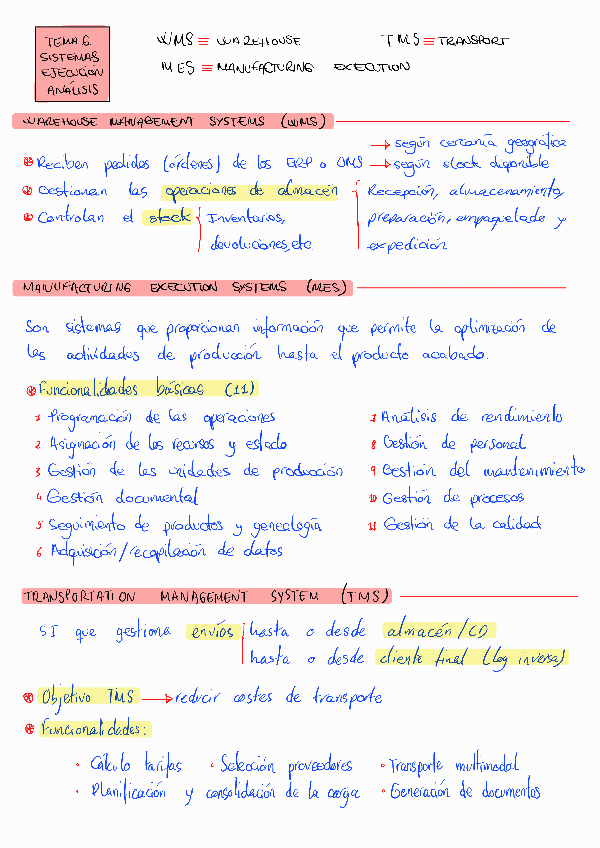 TEMA 6.
SISTEMAS
EJECUCIÓN
ANÁLISIS
WMS ≡ WAREHOUSE
TMS ≡ TRANSPORT
MES ≡ MANUFACTURING EXECUTION
WAREHOUSE MANAGEMENT SYSTEMS (WMS)
Reciben pedidos (órdenes) de los ERP o OMS
→ según cercanía geográfica
→ según stock disponible
Gestionan las operaciones de almacén
Recepción, almacenamiento,
preparación, empaquetado y
expedición
Controlan el stock
Inventarios,
devoluciones, etc
MANUFACTURING EXECUTION SYSTEMS (MES)
Son sistemas que proporcionan información que permite la optimización de
las actividades de producción hasta el producto acabado.
Funcionalidades básicas (11)
1 Programación de las operaciones
2 Asignación de los recursos y estado
3 Gestión de las unidades de producción
4 Gestión documental
5 Seguimiento de productos y genealogía
6 Adquisición/recopilación de datos
7 Análisis de rendimiento
8 Gestión de personal
9 Gestión del mantenimiento
10 Gestión de procesos
11 Gestión de la calidad
TRANSPORTATION MANAGEMENT SYSTEM (TMS)
SI que gestiona envíos
hasta o desde almacén/CD
hasta o desde cliente final (log inversa)
Objetivo TMS → reducir costes de transporte
Funcionalidades:
· Cálculo tarifas · Selección proveedores · Transporte multimodal
· Planificación y consolidación de la carga · Generación de documentos